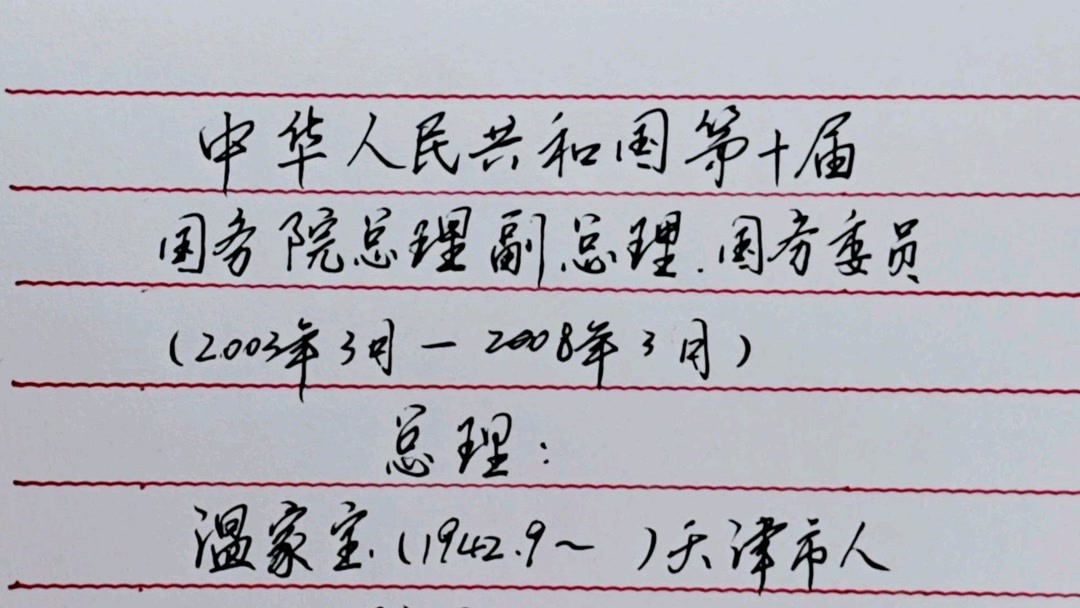 中华人民共和国第十届
国务院总理副总理.国务委员
(2003年3月-2008年3月)
总理:
温家宝.(1942.9~ )天津市人